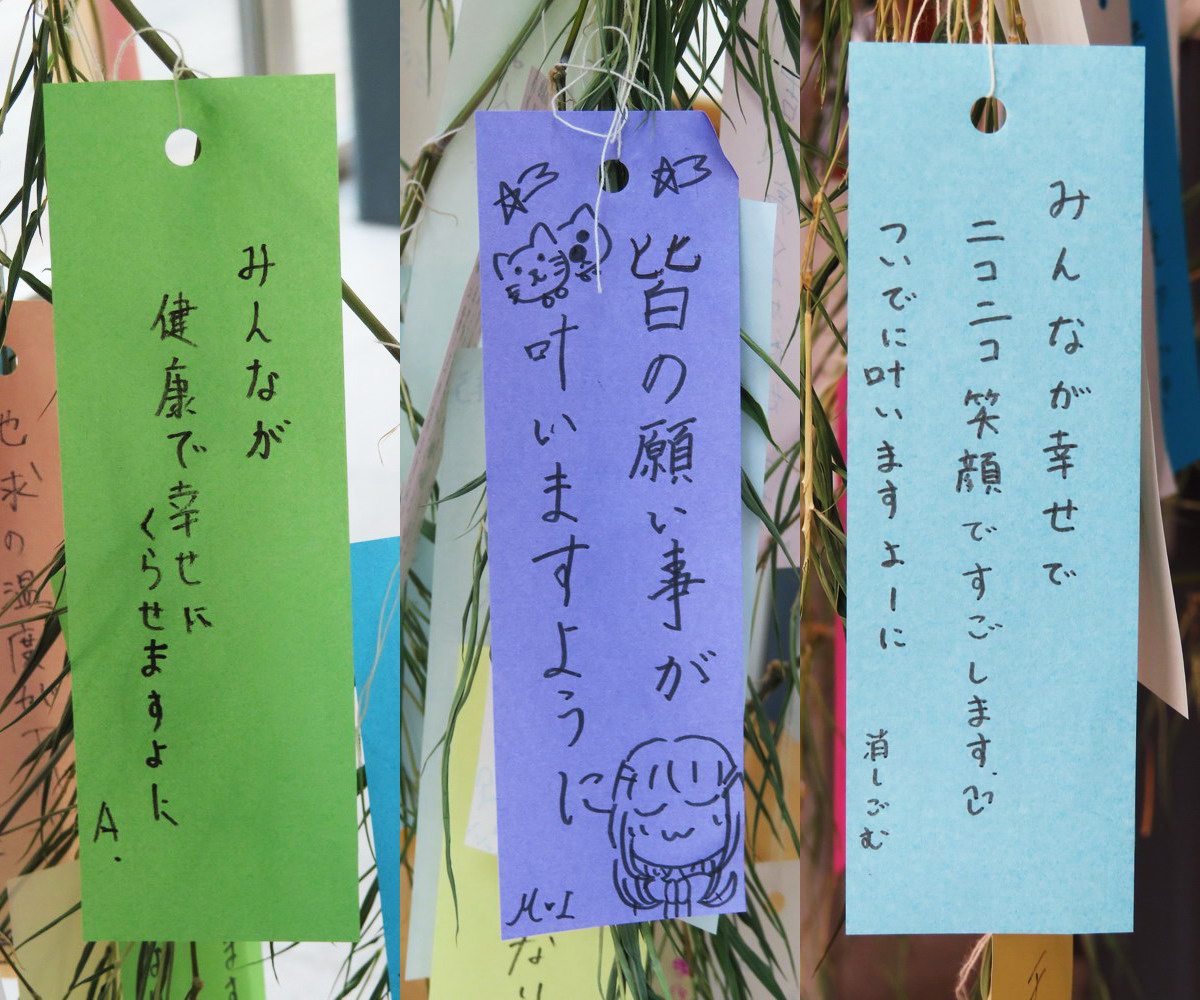 みんなが
健康で幸せに
くらせますよに
A.
皆の願い事が
叶いますように
M・I
みんなが幸せで
ニコニコ笑顔ですごします。
ついでに叶いますよーに
消しごむ
地球の温度が下